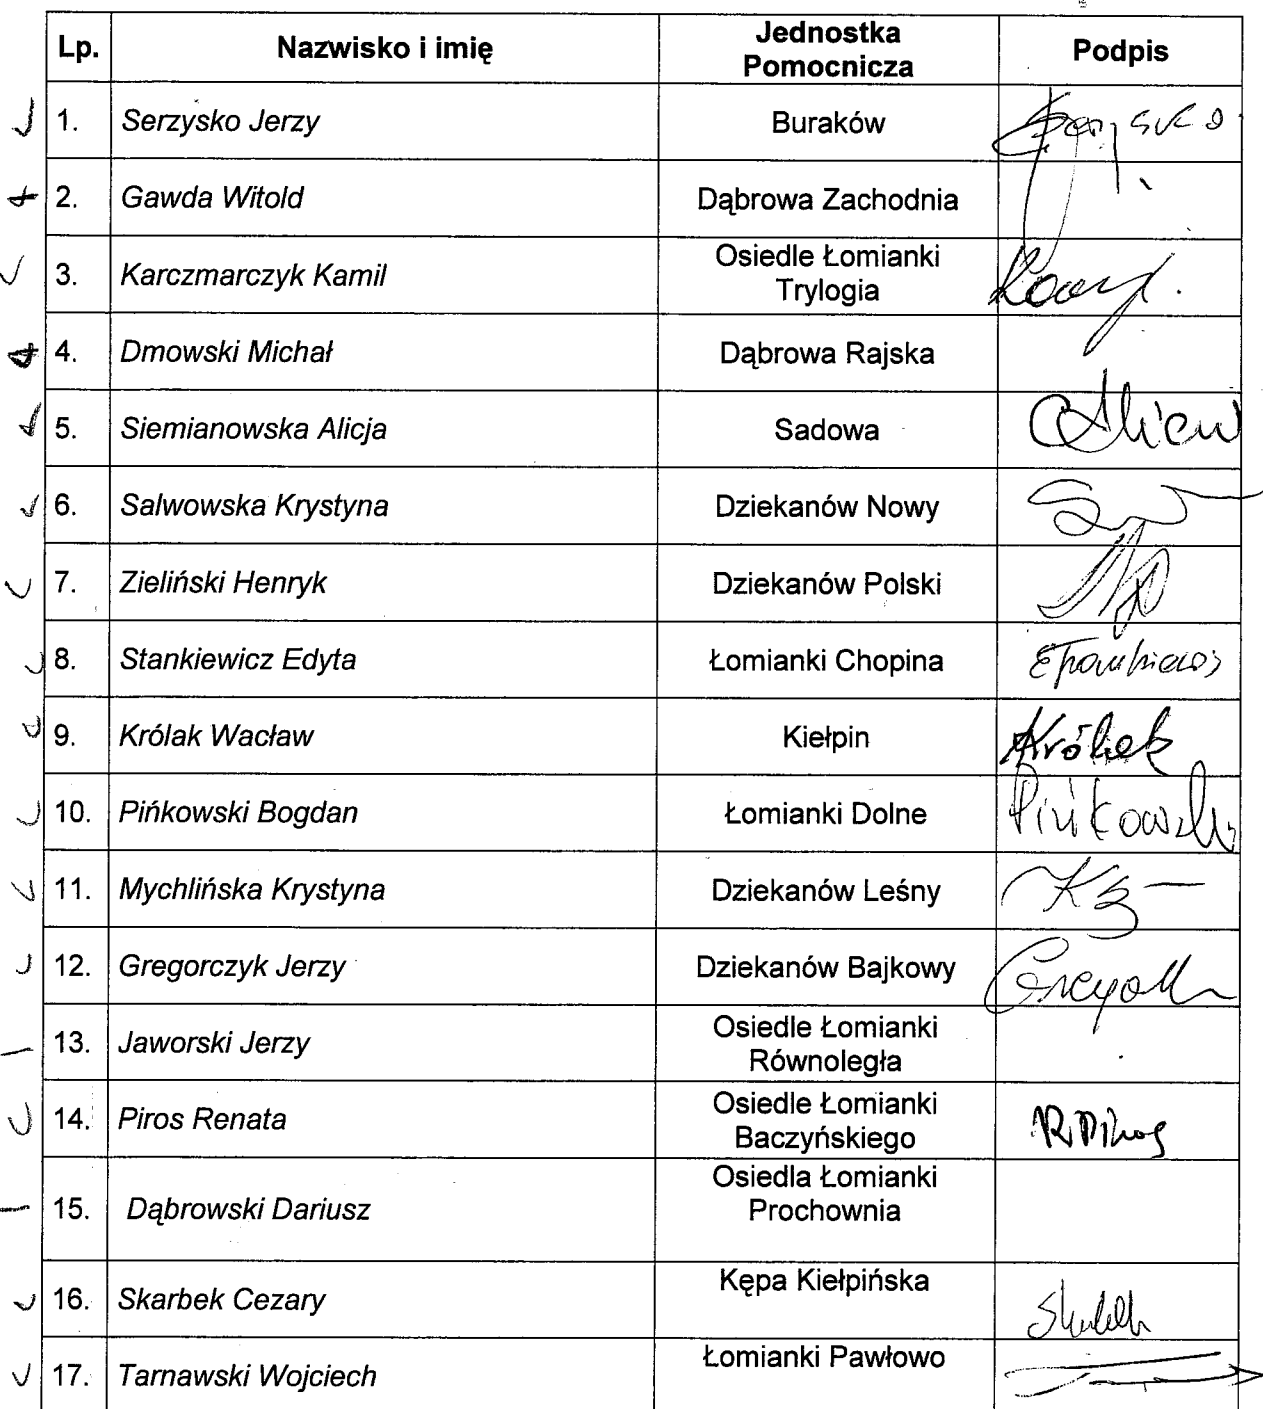 Lp. Nazwisko i imię Jednostka Pomocnicza Podpis
1. Serzysko Jerzy Buraków
2. Gawda Witold Dąbrowa Zachodnia
3. Karczmarczyk Kamil Osiedle Łomianki Trylogia
4. Dmowski Michał Dąbrowa Rajska
5. Siemianowska Alicja Sadowa
6. Salwowska Krystyna Dziekanów Nowy
7. Zieliński Henryk Dziekanów Polski
8. Stankiewicz Edyta Łomianki Chopina
9. Królak Wacław Kiełpin Królak
10. Pińkowski Bogdan Łomianki Dolne Pińkowski
11. Mychlińska Krystyna Dziekanów Leśny
12. Gregorczyk Jerzy Dziekanów Bajkowy
13. Jaworski Jerzy Osiedle Łomianki Równoległa
14. Piros Renata Osiedle Łomianki Baczyńskiego R Piros
15. Dąbrowski Dariusz Osiedla Łomianki Prochownia
16. Skarbek Cezary Kępa Kiełpińska
17. Tarnawski Wojciech Łomianki Pawłowo